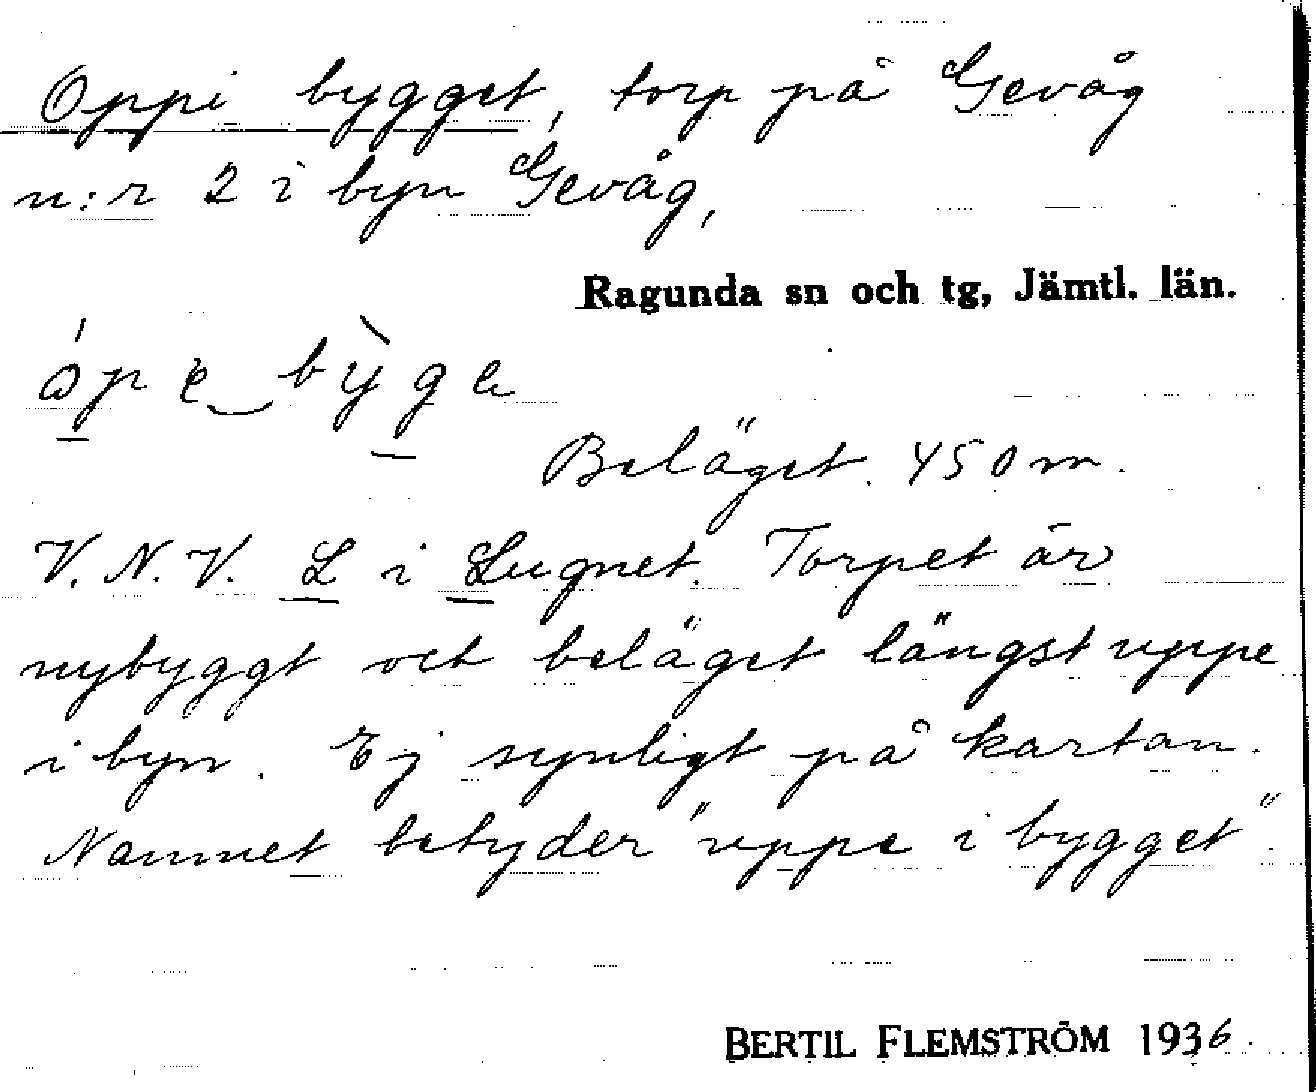 Oppi bygget, torp på Gevåg
n:r 2 i byn Gevåg,
Ragunda sn och tg, Jämtl. län.
Beläget 450 m.
V.N.V. L i Lugnet. Torpet är
nybyggt och beläget längst uppe
i byn. Ej synligt på kartan.
Namnet betyder "uppe i bygget".
BERTIL FLEMSTRÖM 1936.